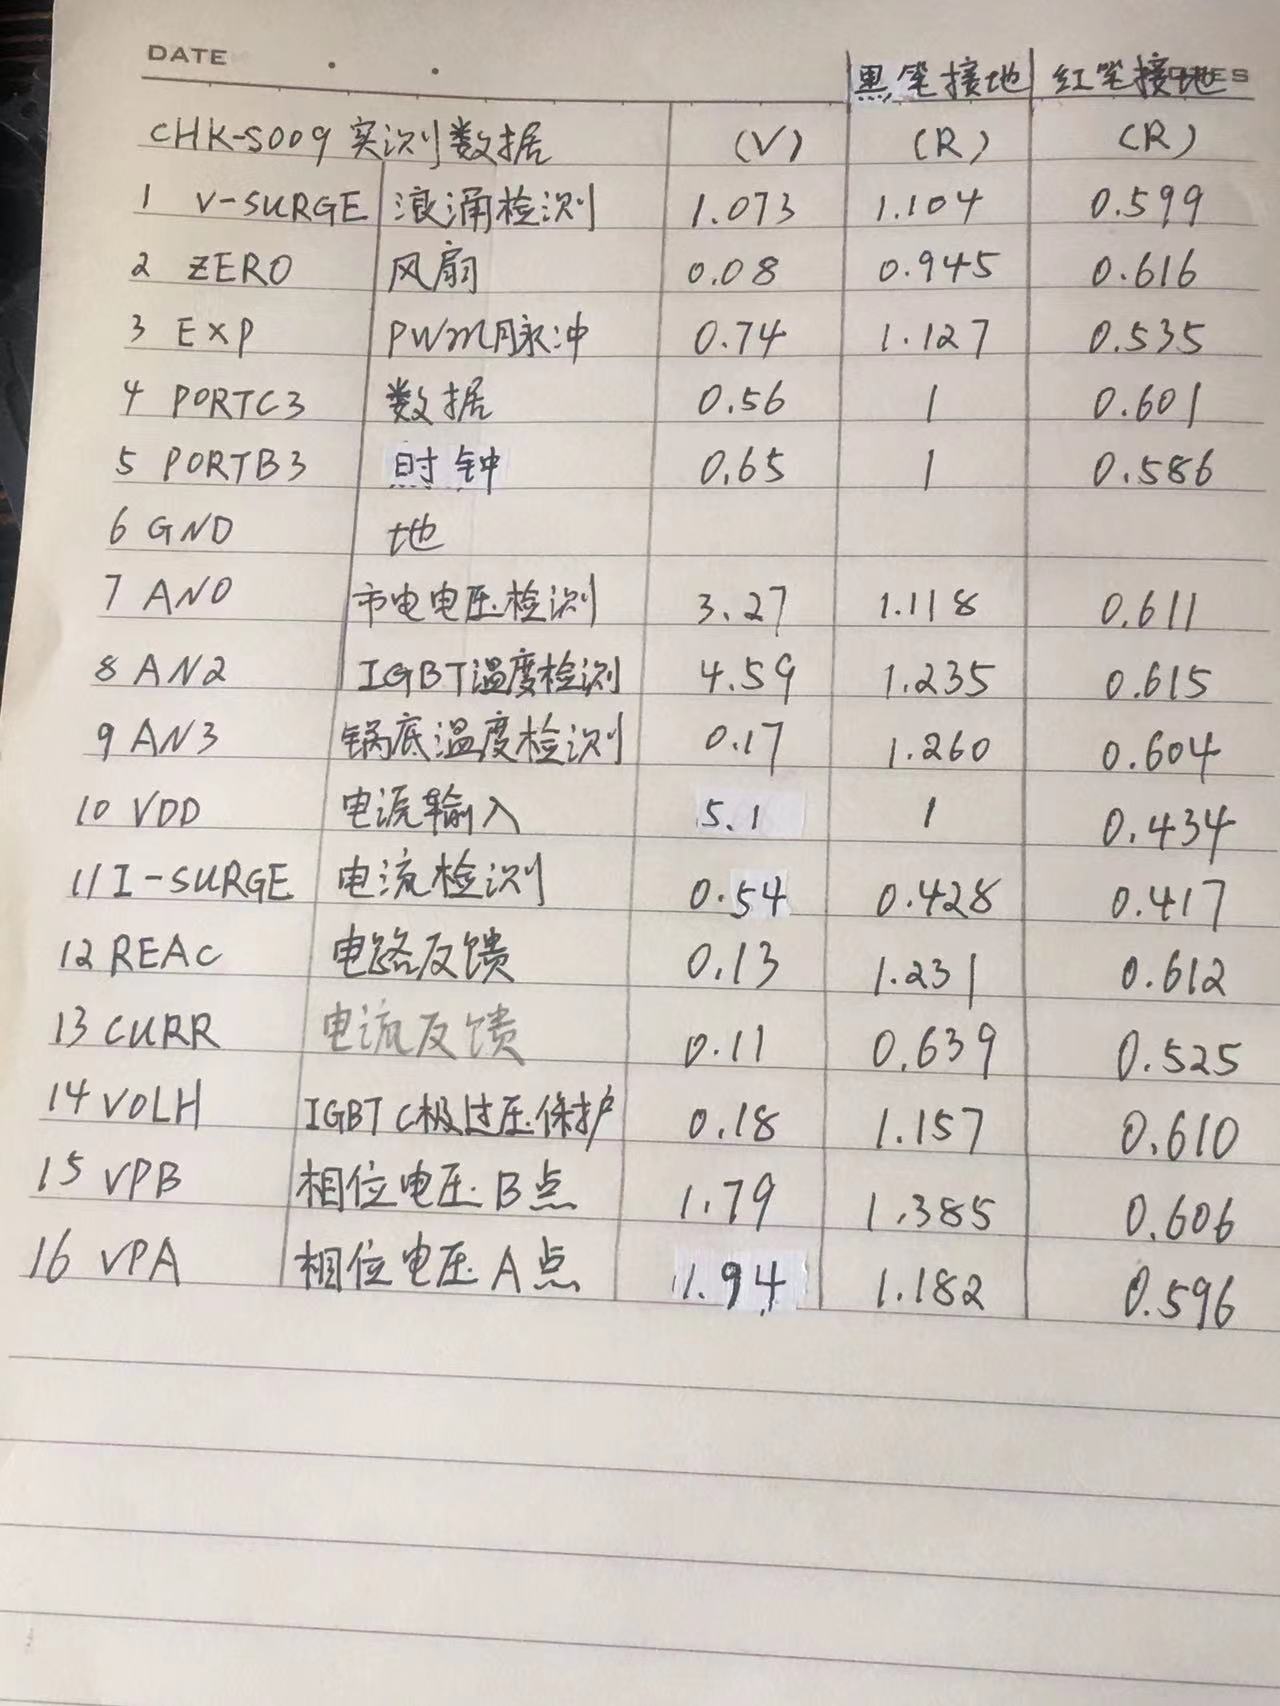 DATE
黑笔接地 红笔接地
CHK-S009 实测数据 (V) (R) (R)
1 V-SURGE 浪涌检测 1.073 1.104 0.599
2 ZERO 风扇 0.08 0.945 0.616
3 EXP PWM脉冲 0.74 1.127 0.535
4 PORTC3 数据 0.56 1 0.601
5 PORTB3 时钟 0.65 1 0.586
6 GND 地
7 AN0 市电电压检测 3.27 1.118 0.611
8 AN2 IGBT温度检测 4.59 1.235 0.615
9 AN3 锅底温度检测 0.17 1.260 0.604
10 VDD 电源输入 5.1 1 0.434
11 I-SURGE 电流检测 0.54 0.428 0.417
12 REAC 电路反馈 0.13 1.231 0.612
13 CURR 电流反馈 0.11 0.639 0.525
14 VOLH IGBT C极过压保护 0.18 1.157 0.610
15 VPB 相位电压B点 1.79 1.385 0.606
16 VPA 相位电压A点 1.94 1.182 0.596